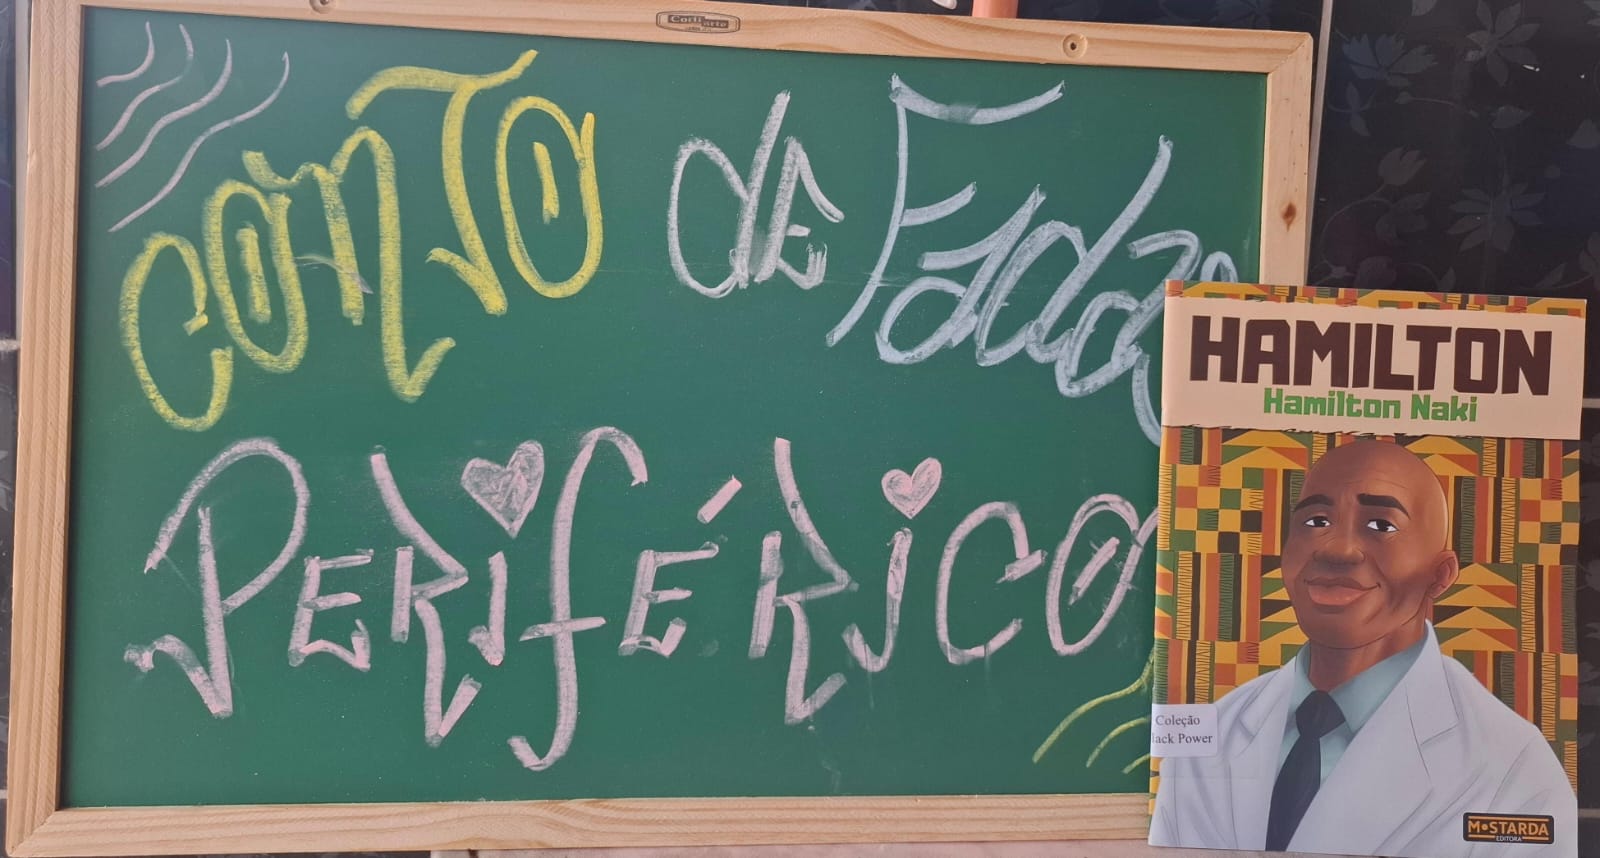 Corti arte
CONTO de Fadas
PERIFÉRICO
HAMILTON
Hamilton Naki
Coleção
lack Power
MOSTARDA
EDITORA